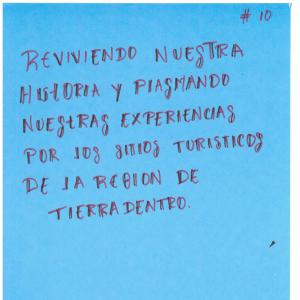 # 10
REVIVIENDO NUESTRA
HISTORIA Y PLASMANDO
NUESTRAS EXPERIENCIAS
POR LOS SITIOS TURISTICOS
DE LA REGION DE
TIERRADENTRO.